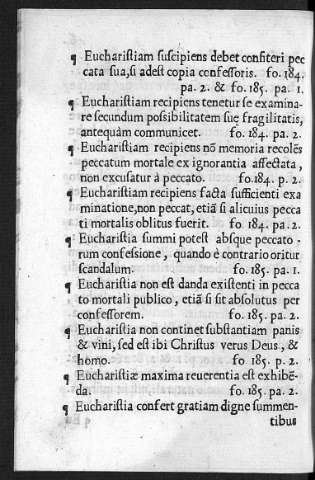 ¶ Euchariſtiam ſuſcipiens debet confiteri pec
cata ſua, ſi adeſt copia confeſſoris. fo. 184.
pa. 2. & fo. 185. pa. 1.
¶ Euchariſtiam recipiens tenetur ſe examina-
re ſecundum poſſibilitatem ſuę fragilitatis,
antequàm communicet. fo. 184. pa. 2.
¶ Euchariſtiam recipiens nō memoria recolēs
peccatum mortale ex ignorantia affectata,
non excuſatur à peccato. fo. 184. p. 2.
¶ Euchariſtiam recipiens facta ſufficienti exa
minatione, non peccat, etiā ſi alicuius pecca
ti mortalis oblitus fuerit. fo. 184. pa. 2.
¶ Euchariſtia ſummi poteſt abſque peccato-
rum confeſsione, quando è contrario oritur
ſcandalum. fo. 185. pa. 1.
¶ Euchariſtia non eſt danda exiſtenti in pecca
to mortali publico, etiā ſi ſit abſolutus per
confeſſorem. fo. 185. pa. 2.
¶ Euchariſtia non continet ſubſtantiam panis
& vini, ſed eſt ibi Chriſtus verus Deus, &
homo. fo 185. p. 2.
¶ Euchariſtiæ maxima reuerentia eſt exhibē-
da. fo. 185. pa. 2.
¶ Euchariſtia confert gratiam digne ſummen-
tibus